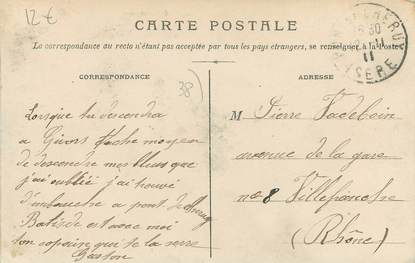 12€
CARTE POSTALE
La correspondance au recto n'étant pas acceptée par tous les pays étrangers, se renseigner à la Poste
CORRESPONDANCE
ADRESSE
38
ISERE
Lorsque tu descendra
a Givors tache moyen
de descendre mes bleus que
j'ai oublié j'ai trouvé
d'embauche a pont de
est avec moi
ton copain qui te la serre
Gaston
M Pierre Vadeboin
avenue de la gare
n° 8 Villefranche
(Rhône)